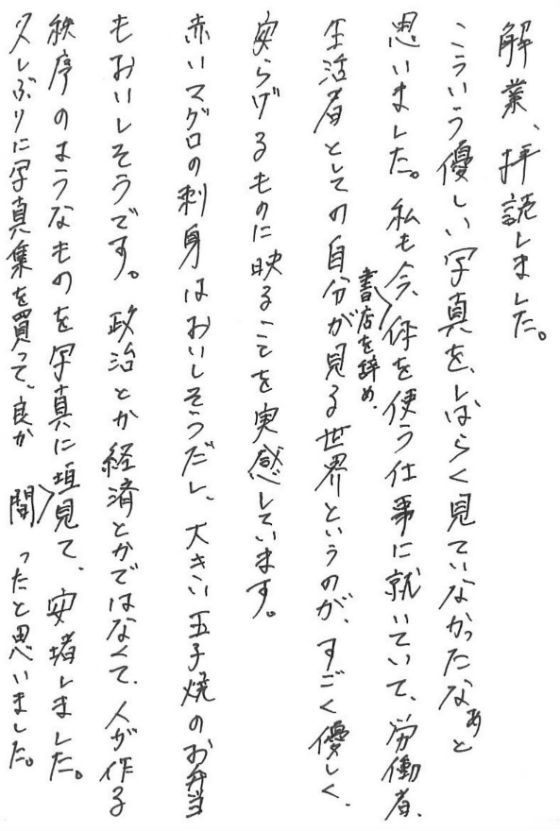 解業、拝読しました。
こういう優しい写真を、しばらく見ていなかったなあと
思いました。私も今、書店を辞め、体を使う仕事に就いていて、労働者、
生活者としての自分が見る世界というのが、すごく優しく、
安らげるものに映ることを実感しています。
赤いマグロの刺身はおいしそうだし、大きい玉子焼のお弁当
もおいしそうです。政治とか経済とかではなくて、人が作る
秩序のようなものを写真に垣間見て、安堵しました。
久しぶりに写真集を買って、良かったと思いました。